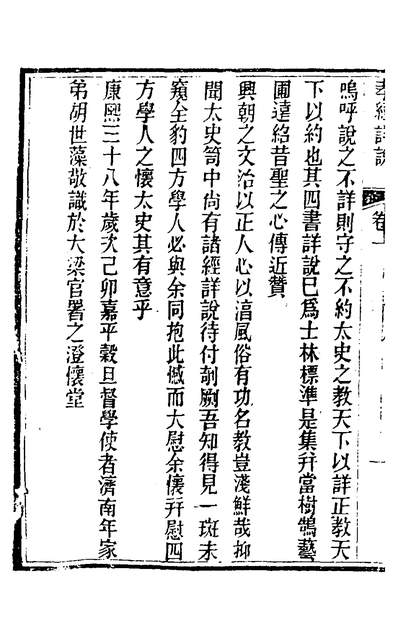 孝經詳說 卷一
嗚呼說之不詳則守之不約太史之教天下以詳正教天
下以約也其四書詳說已爲士林標準是集幷當樹鵠藝
圃遠紹昔聖之心傳近贊
興朝之文治以正人心以淯風俗有功名教豈淺鮮哉抑
聞太史笥中尚有諸經詳說待付剞劂吾知得見一斑未
窺全豹四方學人必與余同抱此憾而大慰余懷幷慰四
方學人之懷太史其有意乎
康熙三十八年歲次己卯嘉平穀旦督學使者濟南年家
弟胡世藻敬識於大梁官署之澄懷堂